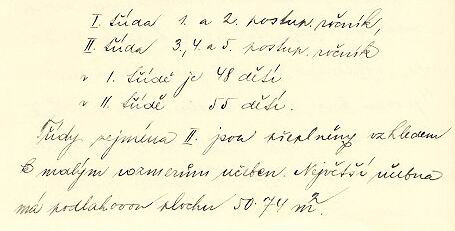 I. třída 1. a 2. postup. ročník,
II. třída 3., 4. a 5. postup. ročník
v I. třídě je 48 dětí
v II. třídě 55 dětí.
Třídy zejména II. jsou přeplněny vzhledem
k malým rozměrům učeben. Největší učebna
má podlahovou plochu 50·74 m².